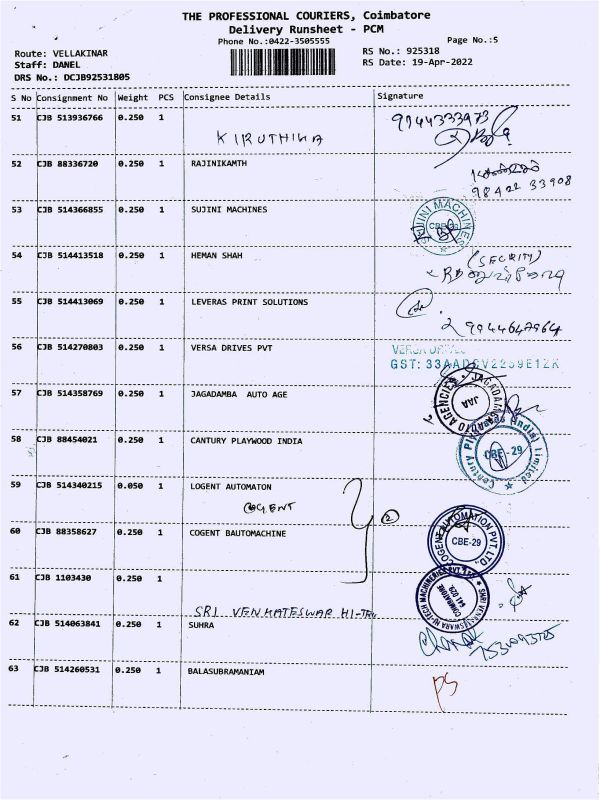 THE PROFESSIONAL COURIERS, Coimbatore
Delivery Runsheet - PCM
Phone No.:0422-3505555
Page No.:5
Route: VELLAKINAR
Staff: DANEL
DRS No.: DCJB92531805
RS No.: 925318
RS Date: 19-Apr-2022
S No Consignment No Weight PCS Consignee Details Signature
51 CJB 513936766 0.250 1
KIRUTHIKA
9944333973
52 CJB 88336720 0.250 1 RAJINIKAMTH
98422 33908
53 CJB 514366855 0.250 1 SUJINI MACHINES
SUJINI MACHINES
54 CJB 514413518 0.250 1 HEMAN SHAH
(SECURITY)
55 CJB 514413069 0.250 1 LEVERAS PRINT SOLUTIONS
9944647964
56 CJB 514270803 0.250 1 VERSA DRIVES PVT
GST: 33AADCV2259E1ZK
57 CJB 514358769 0.250 1 JAGADAMBA AUTO AGE
JAGADAMBA AUTO AGENCIES
JAA
58 CJB 88454021 0.250 1 CANTURY PLAYWOOD INDIA
CBE - 29
59 CJB 514340215 0.050 1 LOGENT AUTOMATON
COGENT
2
60 CJB 88358627 0.250 1 COGENT BAUTOMACHINE
COGENT AUTOMATION PVT. LTD.,
CBE-29
61 CJB 1103430 0.250 1
SRI VENKATESWAR HI-TECH
SHRI VENKATESWARA HI-TECH MACHINERIES PVT LTD
COIMBATORE
641 029.
62 CJB 514063841 0.250 1 SUHRA
63 CJB 514260531 0.250 1 BALASUBRAMANIAM
PS